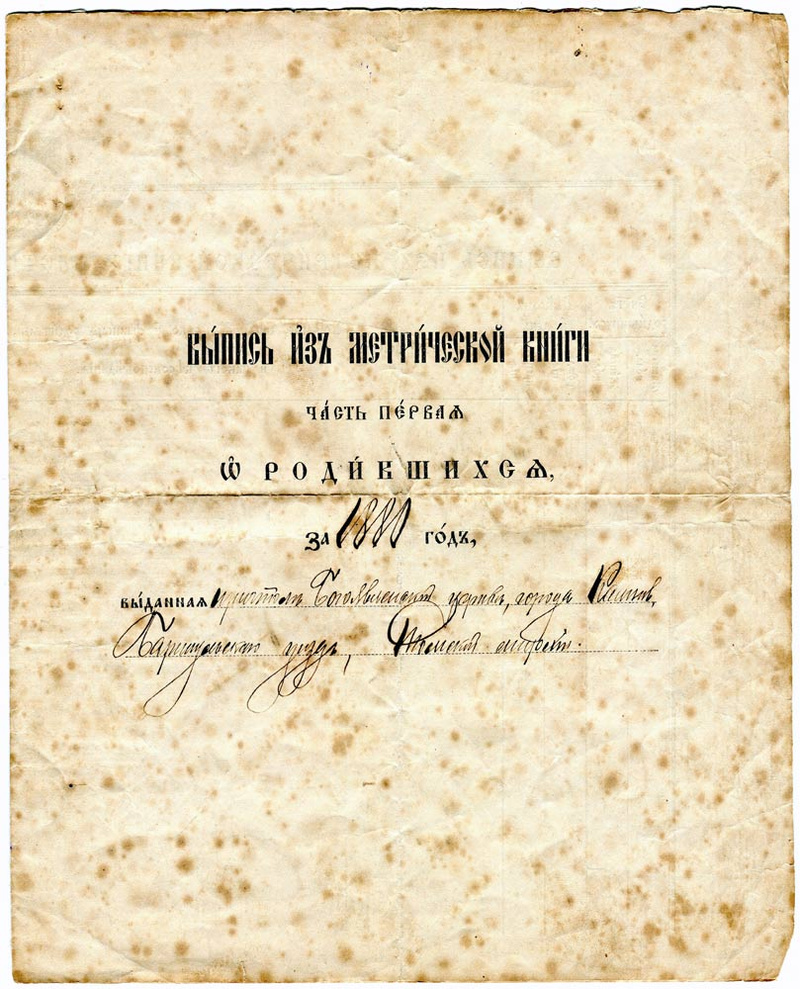 Вы́пись и҆зъ метри́ческой кни́ги
ча́сть пе́рваѧ
Ѡ҆ роди́вшихсѧ,
за 1880 го́дъ,
вы́данная причтомъ Богоявленской церкви, города
Барнаульскаго уезда, Томской